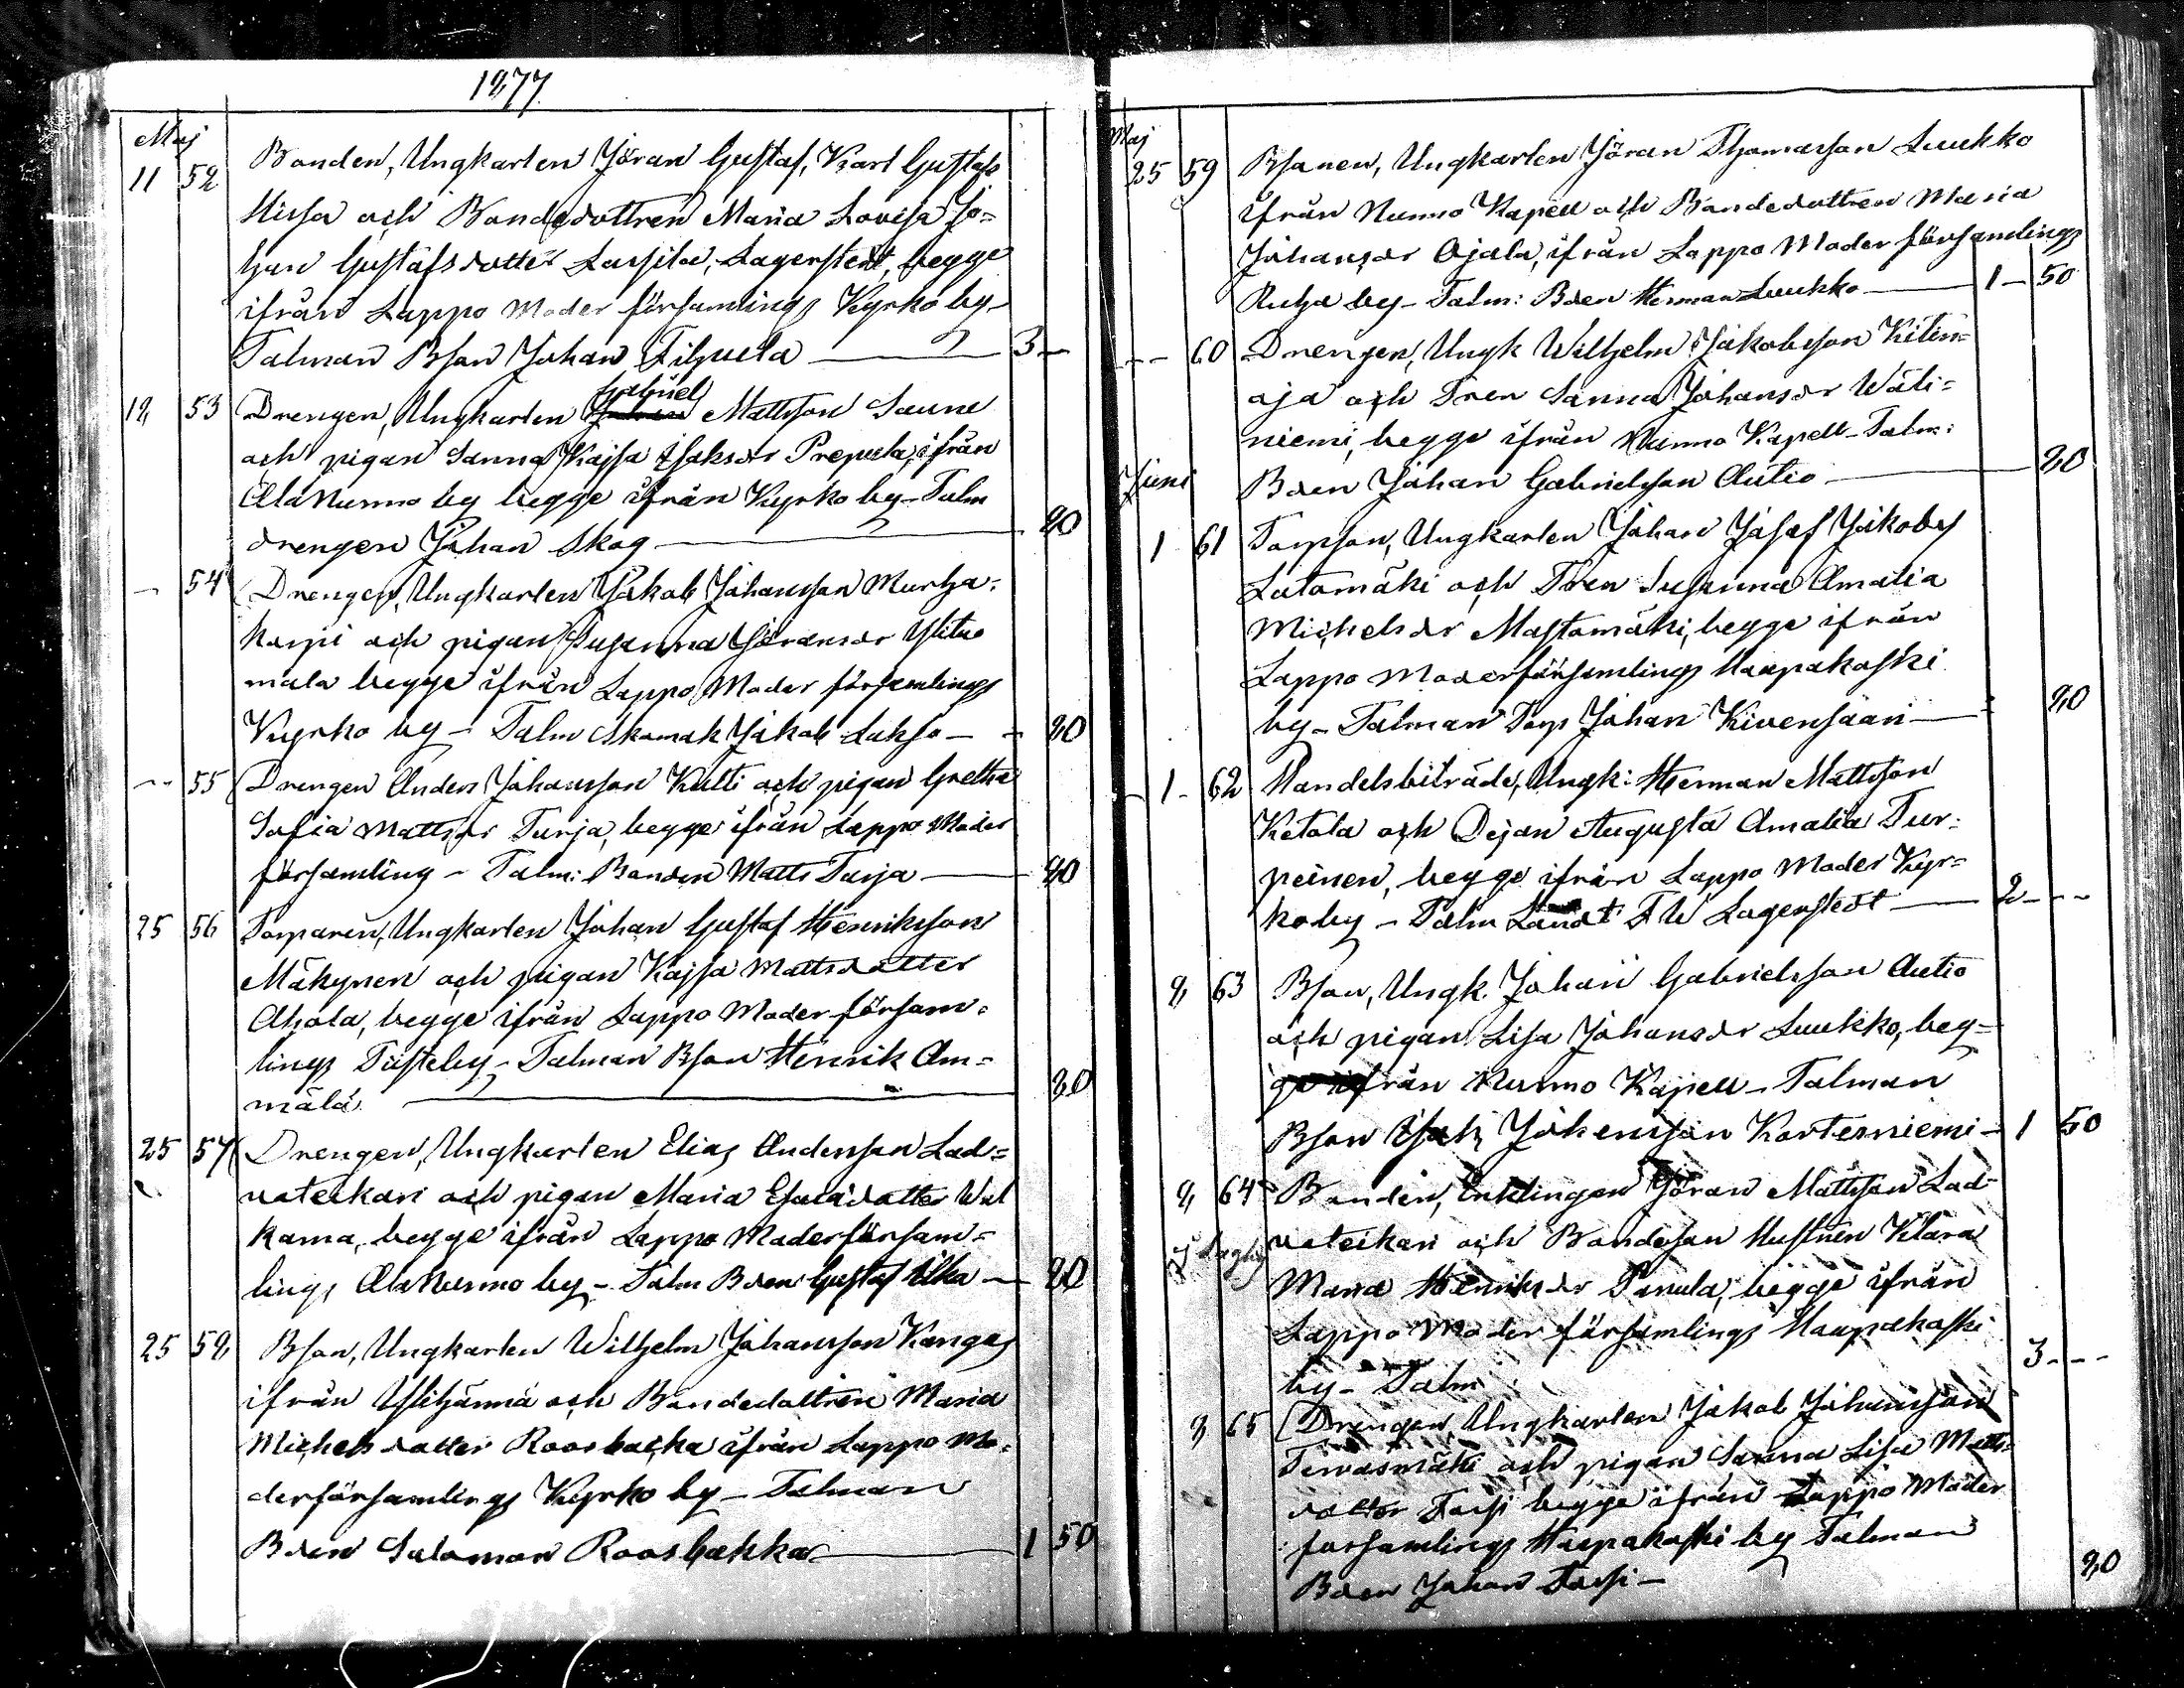 1877
Maj
11 52 Bonden, Ungkarlen Jöran Gustaf, Karl Gustafs
Hissa och Bondedottren Maria Lovisa Jo=
han Gustafsdotter Lassila, Lagerstedt, begge
ifrån Lappo Moder församlings Kyrko by
Talman Bson Johan Filpula — 3 —
12 53 Drengen, Ungkarlen Gabriel Mattsson Saune
och pigan Sanna Kajsa Isaksdr Prepula, ifrån
Ala Nurmo by begge ifrån Kyrko by - Talm
drengen Johan Skog — 80
— 54 Drengen, Ungkarlen Jakob Johansson Murha=
karpi och pigan Susanna Göransdr Ylituo
mala begge ifrån Lappo Moder församlings
Kyrko by - Talm Skomak Jakob Lakso — 80
-- 55 Drengen Anders Johansson Kulti och pigan Gretha
Sofia Mattsdr Turja, begge ifrån Lappo Moder
församling - Talm: Bonden Matts Turja — 80
25 56 Torparen, Ungkarlen Johan Gustaf Henriksson
Mäkynen och pigan Kajsa Mattsdotter
Ahola, begge ifrån Lappo Moder försam=
lings Tiisteby - Talman Bson Henrik Am=
mälä — 80
25 57 Drengen, Ungkarlen Elias Andersson Lad=
vateikari och pigan Maria Esaiädotter Wal
kama, begge ifrån Lappo Moderförsam=
lings Ala Nurmo by - Talm Bden Gustaf Ilka — 80
25 58 Bson, Ungkarlen Wilhelm Johansson Kangas
ifrån Ylihärmä och Bondedottren Maria
Michelsdotter Roosbacka ifrån Lappo Mo=
derförsamlings Kyrko by - Talman
Bden Salomon Roosbakka — 1 50
Maj
25 59 Bsonen, Ungkarlen Jöran Thomasson Luukko
ifrån Nurmo Kapell och Bondedottren Maria
Johansdr Ojala, ifrån Lappo Moder församlings
Ruha by - Talm: Bden Herman Luukko — 1 - 50
-- 60 Drengen, Ungk Wilhelm Jakobsson Kitin=
oja och Tren Sanna Johansdr Wäli=
niemi, begge ifrån Nurmo Kapell - Talm:
Bden Johan Gabrielsson Autio — 80
Juni
1 61 Torpson, Ungkarlen Johan Josef Jakobss
Latomäki och Tren Susanna Amalia
Michelsdr Mastomäki, begge ifrån
Lappo Moderförsamlings Haapakoski
by - Talman Torp Johan Kivensaari — 80
1 62 Handelsbiträde, Ungk: Herman Mattsson
Ketola och Dejan Augusta Amalia Tur=
peinen, begge ifrån Lappo Moder Kyr=
koby - Talm Landt F W Lagerstedt — 2 - --
8 63 Bson, Ungk. Johan Gabrielsson Autio
och pigan Lisa Johansdr Luukko, beg=
ge ifrån Nurmo Kapell - Talman
Bson Isak Johansson Kortesniemi - 1 50
8 64 Bonden, Enklingen Jöran Mattsson Lad=
vateikari och Bondeson Hustruen Klara
Maria Henriksdr Panula, begge ifrån
Lappo Moder församlings Haapakoski
by - Talm 3 - --
8 65 Drengen, Ungkarlen Jakob Johansson
Tervasmäki och pigan Sanna Lisa Matts=
dotter Tassi begge ifrån Lappo Moder
församlings Haapakoski by Talman
Bden Johan Tassi — 80